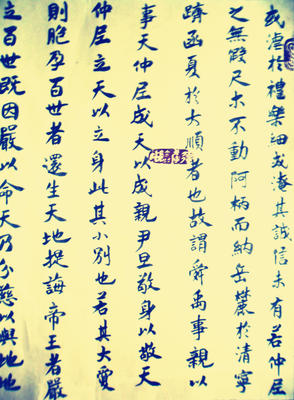 或於禮樂細或淹其誠信未有若仲尼
之無假尺木不動阿柄而納岳麓於清寧
躋函夏於大順者也故謂舜禹事親以
事天仲尼成天以成親尹旦敬身以敬天
仲尼立天以立身此其小別也若其大愛
則胞孕百世者還生天地提誨帝王者嚴
立百世既因嚴以命天乃分慈以與地地